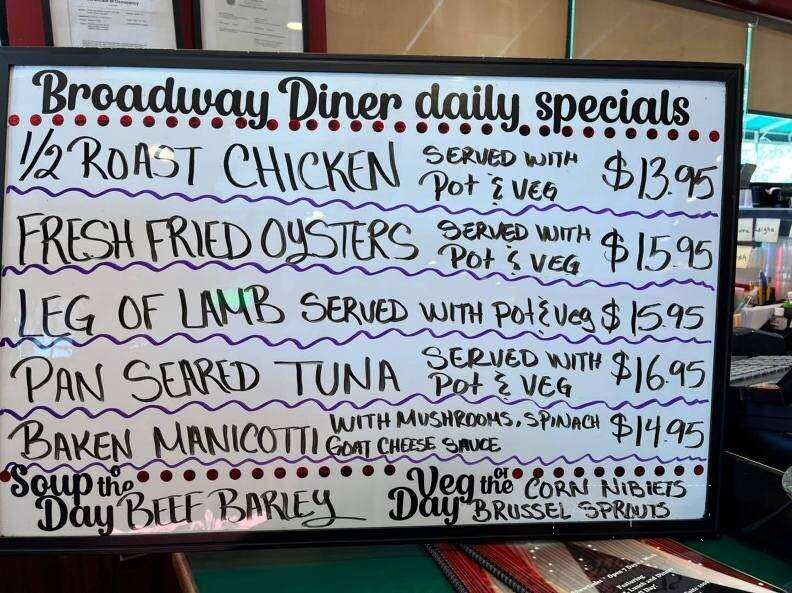 Broadway Diner daily specials
1/2 ROAST CHICKEN SERVED WITH Pot & VEG $13.95
FRESH FRIED OYSTERS SERVED WITH Pot & VEG $15.95
LEG OF LAMB SERVED WITH Pot & Veg $15.95
PAN SEARED TUNA SERVED WITH Pot & VEG $16.95
BAKEN MANICOTTI WITH MUSHROOMS, SPINACH GOAT CHEESE SAUCE $14.95
Soup of the Day BEEF BARLEY
Veg of the Day CORN NIBIETS BRUSSEL SPROUTS
Open 7 Days
Featuring
Lunch and